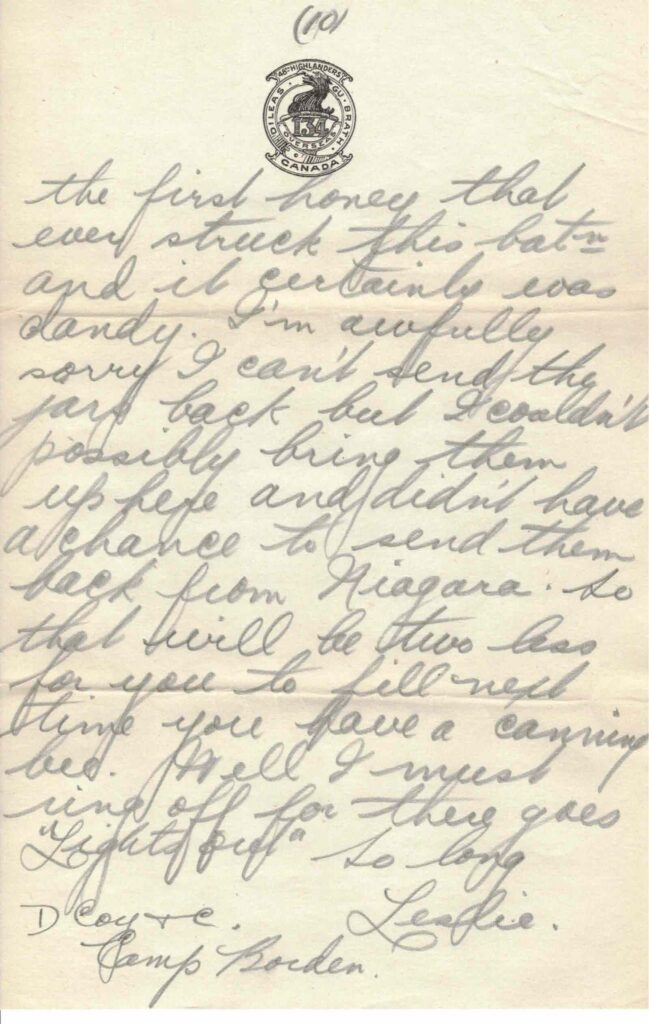 (10)
48TH HIGHLANDERS
DILEAS GU BRATH
134
OVERSEAS
CANADA
the first honey that
ever struck this batn
and it certainly was
dandy. I'm awfully
sorry I can't send the
jars back but I couldn't
possibly bring them
up here and didn't have
a chance to send them
back from Niagara. So
that will be two less
for you to fill next
time you have a canning
bee. Well I must
ring off for there goes
"Lights Out" So long
Leslie.
D Coy + c.
Camp Borden.